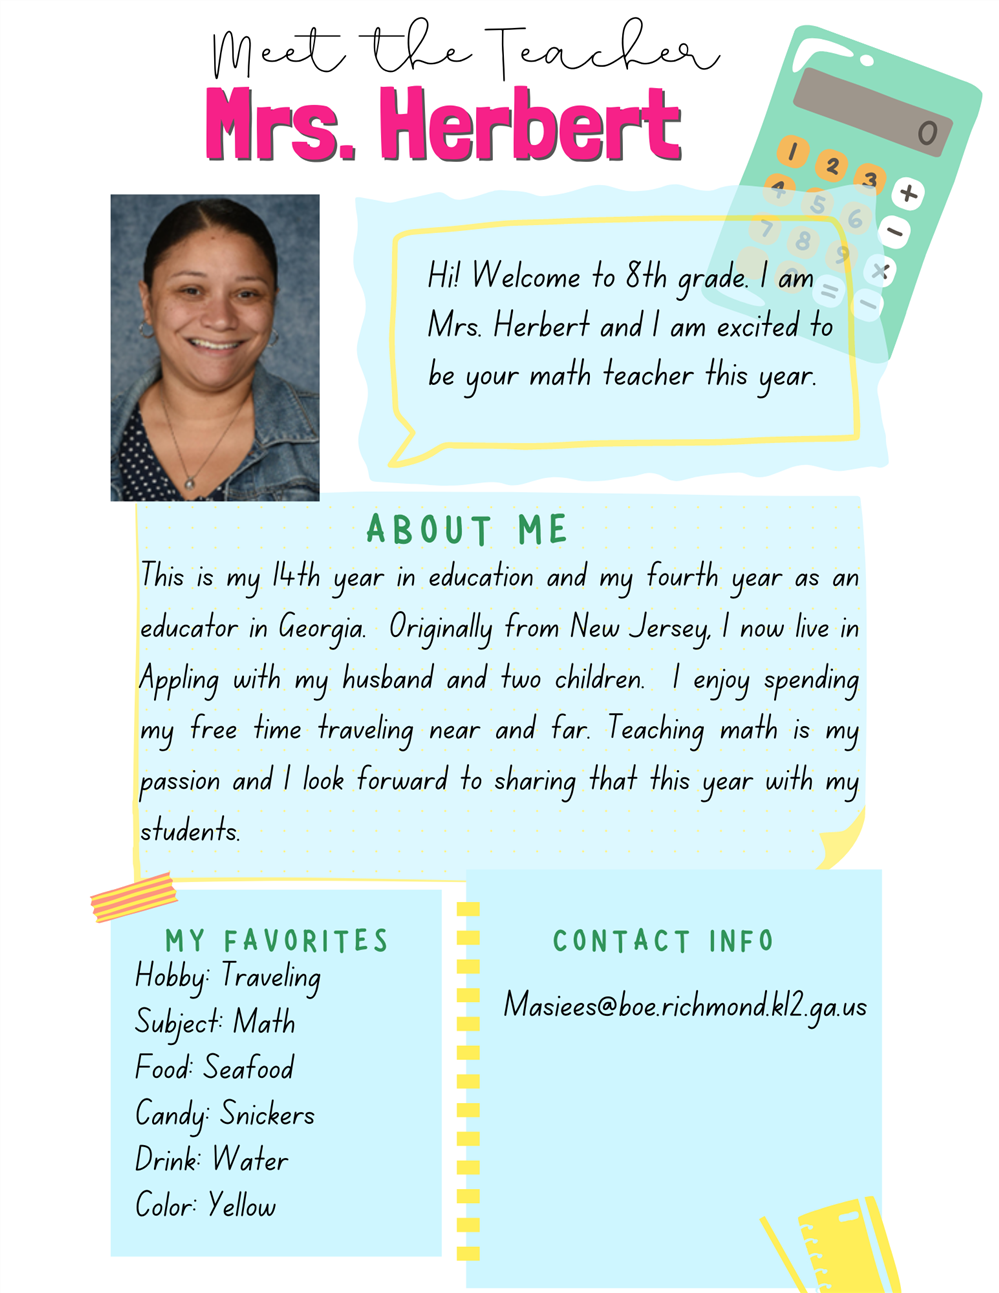 Meet the Teacher
Mrs. Herbert
0
1 2 3 +
4 5 6 -
7 8 9 x
= -
Hi! Welcome to 8th grade. I am
Mrs. Herbert and I am excited to
be your math teacher this year.
ABOUT ME
This is my 14th year in education and my fourth year as an
educator in Georgia. Originally from New Jersey, I now live in
Appling with my husband and two children. I enjoy spending
my free time traveling near and far. Teaching math is my
passion and I look forward to sharing that this year with my
students.
MY FAVORITES
Hobby: Traveling
Subject: Math
Food: Seafood
Candy: Snickers
Drink: Water
Color: Yellow
CONTACT INFO
Masiees@boe.richmond.k12.ga.us